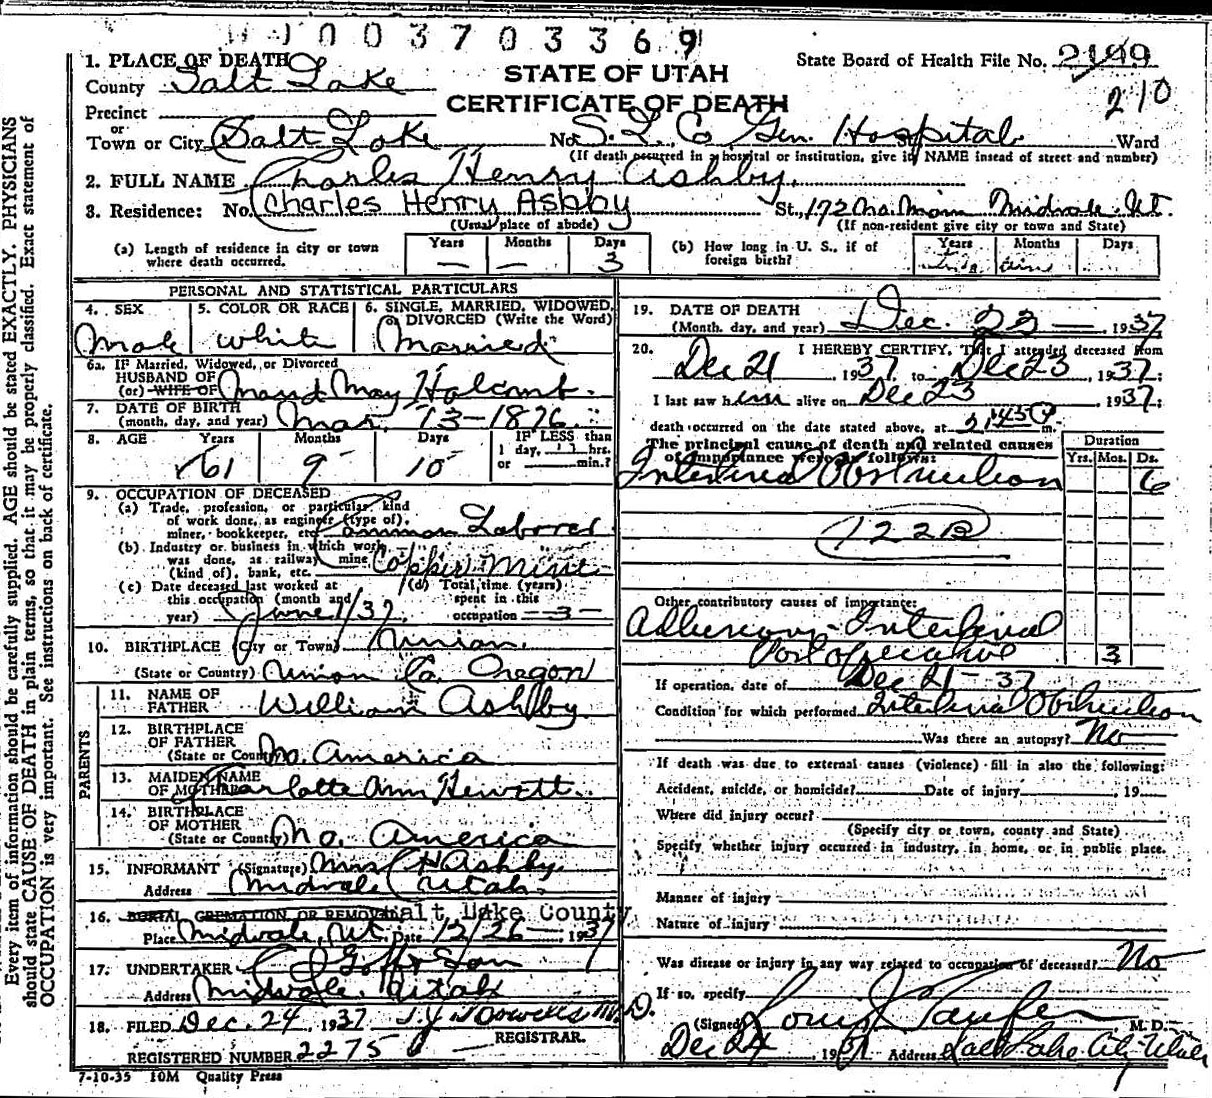 1003703369
1. PLACE OF DEATH
County Salt Lake
STATE OF UTAH
CERTIFICATE OF DEATH
State Board of Health File No. 2199
210
Precinct
or
Town or City Salt Lake No. S. L. Co. Gen. Hospital St. Ward
(If death occurred in a hospital or institution, give its NAME insead of street and number)
2. FULL NAME Charles Henry Ashby.
3. Residence: No. Charles Henry Ashby St., 172 No. Main Midvale Ut.
(Usual place of abode) (If non-resident give city or town and State)
(a) Length of residence in city or town where death occurred. Years — Months — Days 3
(b) How long in U. S., if of foreign birth? Years Months Days
PERSONAL AND STATISTICAL PARTICULARS
4. SEX Male
5. COLOR OR RACE White
6. SINGLE, MARRIED, WIDOWED, or DIVORCED (Write the Word) Married
6a. IF Married, Widowed, or Divorced
HUSBAND OF
(or) WIFE OF Maud May Holcomb
7. DATE OF BIRTH
(month, day, and year) Mar. 13-1876
8. AGE Years 61 Months 9 Days 10 IF LESS than 1 day, hrs. or min.?
9. OCCUPATION OF DECEASED
(a) Trade, profession, or particular kind
of work done, as engineer (type of),
miner, bookkeeper, etc. Common Laborer
(b) Industry or business in which work
was done, as railway, mine
(kind of), bank, etc. Copper Mine
(c) Date deceased last worked at
this occupation (month and
year) June 1/37
(d) Total time (years)
spent in this
occupation —3—
10. BIRTHPLACE (City or Town) Union
(State or Country) Union Co. Oregon
PARENTS
11. NAME OF
FATHER William Ashby
12. BIRTHPLACE
OF FATHER
(State or Country) No. America
13. MAIDEN NAME
OF MOTHER Charlotte Ann Hewett
14. BIRTHPLACE
OF MOTHER
(State or Country) No. America
15. INFORMANT (Signature) Mrs C H Ashby
Address Midvale Utah.
16. BURIAL CREMATION OR REMOVAL Salt Lake County
Place Midvale, Ut. Date 12/26 — 1937
17. UNDERTAKER
Address Midvale, Utah
18. FILED Dec. 24, 1937 M. D.
REGISTRAR.
REGISTERED NUMBER 2275
7-10-35 10M Quality Press
19. DATE OF DEATH
(Month, day, and year) Dec. 23 — , 1937
20. I HEREBY CERTIFY, That I attended deceased from
Dec 21, 1937 to Dec 23, 1937;
I last saw him alive on Dec 23 1937;
death occurred on the date stated above, at 2:45 P m.
The principal cause of death and related causes
of importance were as follows:
Duration
Yrs. Mos. Ds.
Intestinal Obstruction 6
122B
Other contributory causes of importance:
Adhesions - Intestinal
Post operative 3
If operation, date of Dec 21 - 37
Condition for which performed Intestinal Obstruction
Was there an autopsy? No
If death was due to external causes (violence) fill in also the following:
Accident, suicide, or homicide? Date of injury , 19
Where did injury occur?
(Specify city or town, county and State)
Specify whether injury occurred in industry, in home, or in public place.
Manner of injury
Nature of injury
Was disease or injury in any way related to occupation of deceased? No
If so, specify
(Signed) M. D.
Dec 24, 1937 Address Salt Lake City Utah
Every item of information should be carefully supplied. AGE should be stated EXACTLY. PHYSICIANS
should state CAUSE OF DEATH in plain terms, so that it may be properly classified. Exact statement of
OCCUPATION is very important. See instructions on back of certificate.